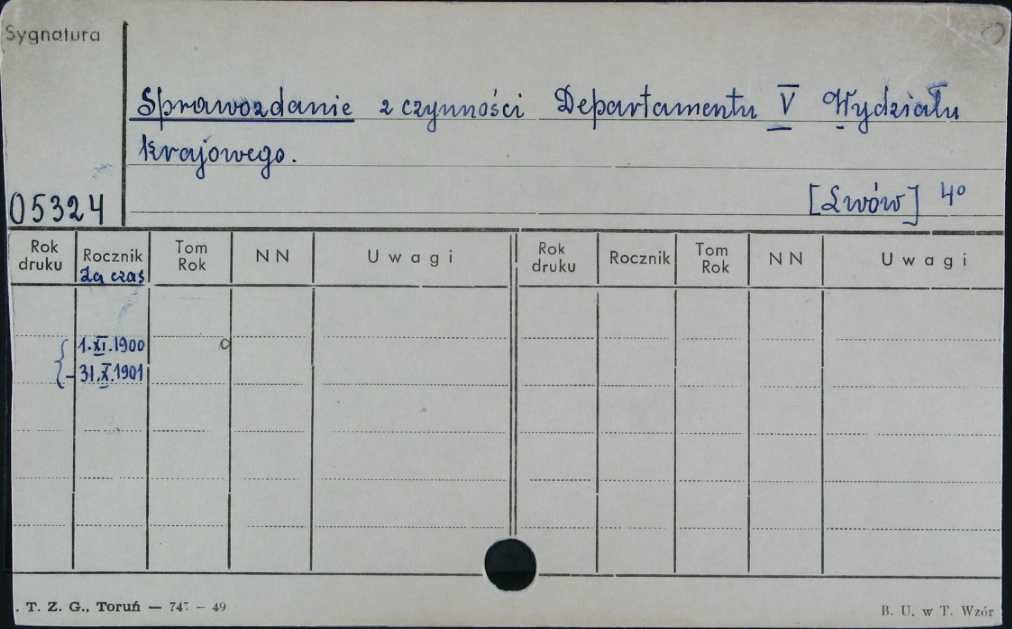 Sygnatura
Sprawozdanie z czynności Departamentu V Wydziału
krajowego.
[Lwów] 4º
05324
Rok druku Rocznik Za czas Tom Rok NN Uwagi Rok druku Rocznik Tom Rok NN Uwagi
1.XI.1900
- 31.X.1901
. T. Z. G., Toruń — 747 — 49 B. U. w T. Wzór